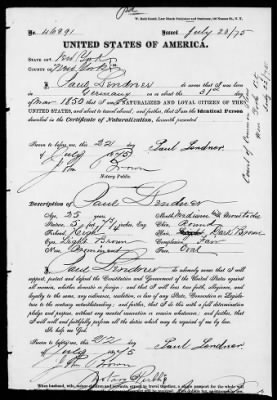 No. 46991 Issued July 23/75
UNITED STATES OF AMERICA.
STATE OF New York
COUNTY OF New York
I, Paul Lendner do swear that I was born
in Germany on or about the 31st day
of Mar 1850 that I am a NATURALIZED AND LOYAL CITIZEN OF THE
UNITED STATES, and about to travel abroad; and further, that I am the Identical Person
described in the Certificate of Naturalization, herewith presented
Sworn to before me, this 22 day
of July 1875
Paul Lendner
John Brown
Notary Public
Description of Paul Lendner
Age, 25 years
Mouth, Medium
Stature, 5 ft
Chin, Round
Forehead, High
Hair, Dark Brown
Eyes, Light Brown
Complexion, Fair
Nose,
Face, Oval
I, Paul Lendner do solemnly swear that I will
support, protect and defend the Constitution and Government of the United States against
all enemies, whether domestic or foreign; and that I will bear true faith, allegiance, and
loyalty to the same, any ordinance, resolution, or law of any State, Convention or Legisla-
ture to the contrary notwithstanding; and further, that I do this with a full determination
pledge and purpose, without any mental reservation or evasion whatsoever; and further, that
I will well and faithfully perform all the duties which may be required of me by law.
So help me God.
Sworn to before me, this 22 day
of July 1875
Paul Lendner
John Brown
Notary Public